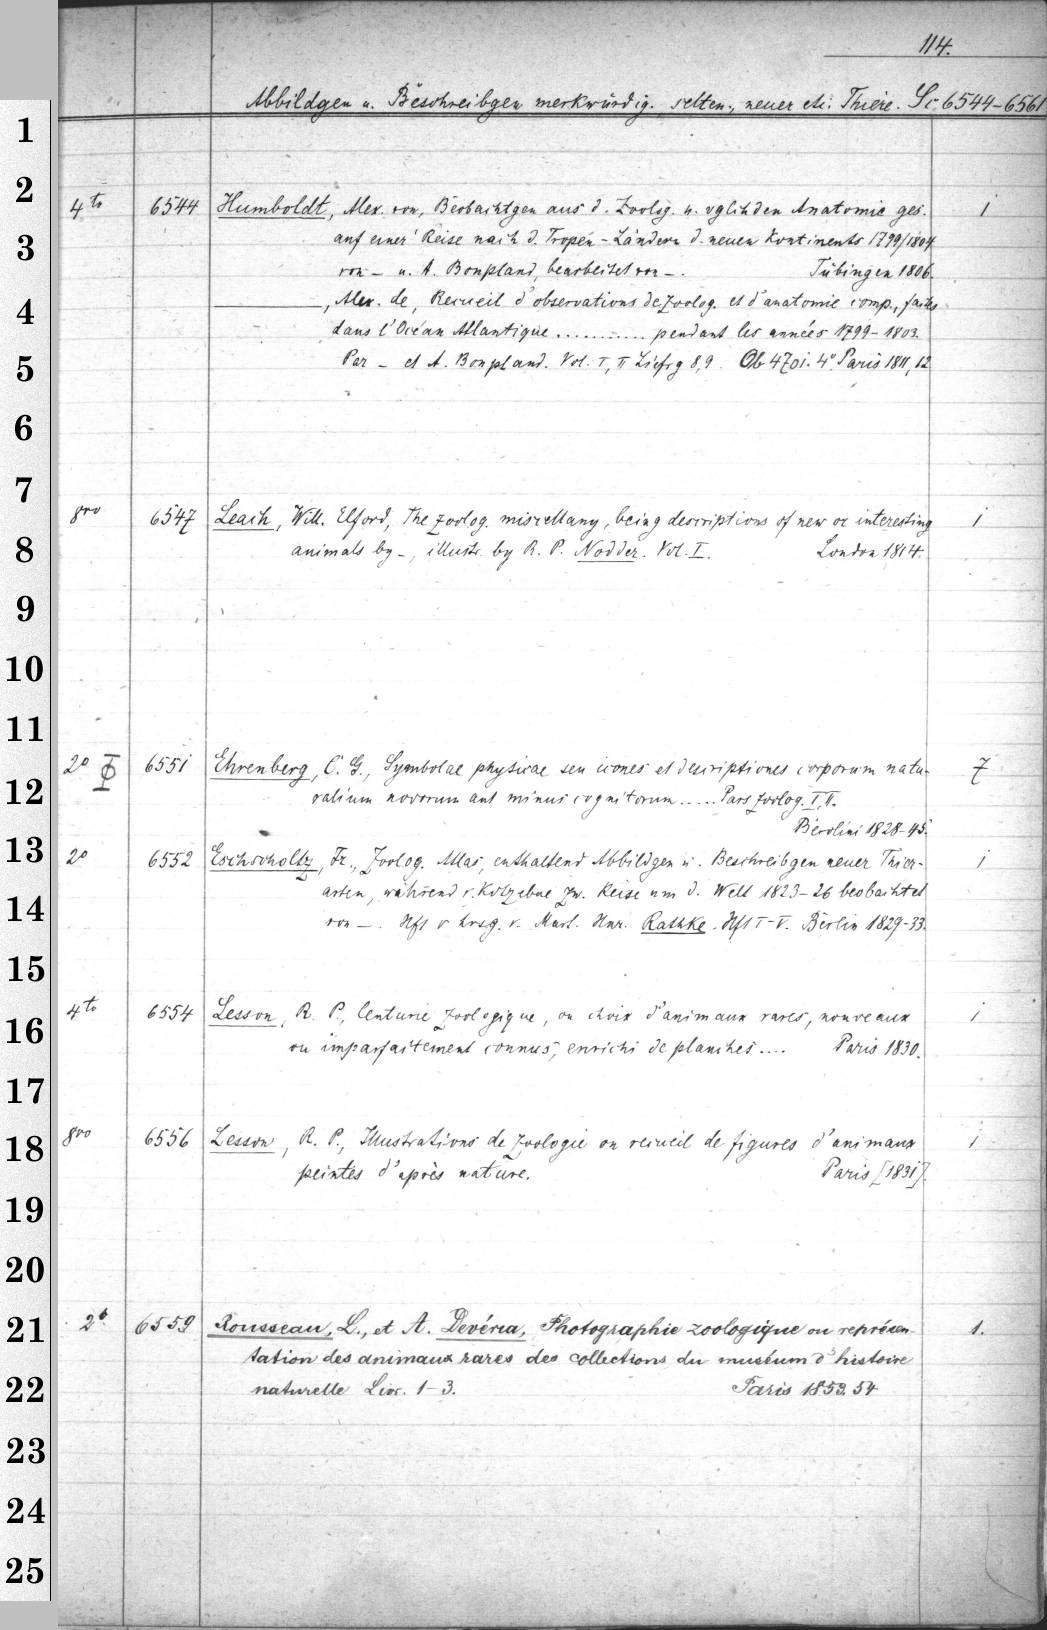 114.
Abbildgen u. Beschreibgen merkwürdig. selten., neuer etc. Thiere. Sc. 6544-6561
1
2
4to 6544 Humboldt, Alex. von, Beobachtgen aus d. Zoolog. u. vglchden Anatomie ges. 1
3
auf einer Reise nach d. Tropen-Ländern d. neuen Kontinents 1799/1804
von – u. A. Bonpland, bearbeitet von –. Tübingen 1806.
4
———, Alex. de, Recueil d'observations de zoolog. et d'anatomie comp., faites
dans l'Océan Atlantique ........... pendant les années 1799-1803.
5
Par – et A. Bonpland. Vol. I, II Liefrg 8,9. Ob 4701. 4º Paris 1811, 12
6
7
8vo 6547 Leach, Will. Elford, The zoolog. miscellany, being descriptions of new or interesting 1
8
animals by –, illustr. by R. P. Nodder. Vol. I. London 1814.
9
10
11
2º 6551 Ehrenberg, C. G., Symbolae physicae seu icones et descriptiones corporum natu- 7
12
ralium novorum aut minus cognitorum ..... Pars zoolog. I, II.
Berolini 1828-45.
13
2º 6552 Eschscholtz, Fr., Zoolog. Atlas, enthaltend Abbildgen u. Beschreibgen neuer Thier- 1
14
arten, während v. Kotzebue zw. Reise um d. Welt 1823-26 beobachtet
von –. Hft V hrsg. v. Mart. Hnr. Rathke. Hft I-V. Berlin 1829-33.
15
4to 6554 Lesson, R. P., Centurie zoologique, ou choix d'animaux rares, nouveaux 1
16
ou imparfaitement connus, enrichi de planches .... Paris 1830.
17
8vo 6556 Lesson, R. P., Illustrations de zoologie ou recueil de figures d'animaux 1
18
peintes d'après nature. Paris [1831].
19
20
21
2º 6559 Rousseau, L., et A. Devéria, Photographie zoologique ou représen- 1.
tation des animaux rares des collections du muséum d'histoire
22
naturelle Livr. 1-3. Paris 1853. 54
23
24
25